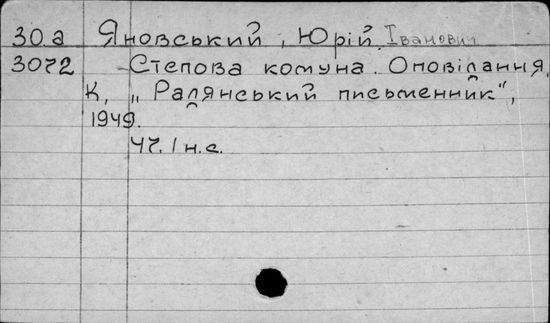 30.а Яновський, Юрій Іванович
3072 Степова комуна. Оповідання.
К, „Радянський письменник",
1949.
47. 1 н.с.